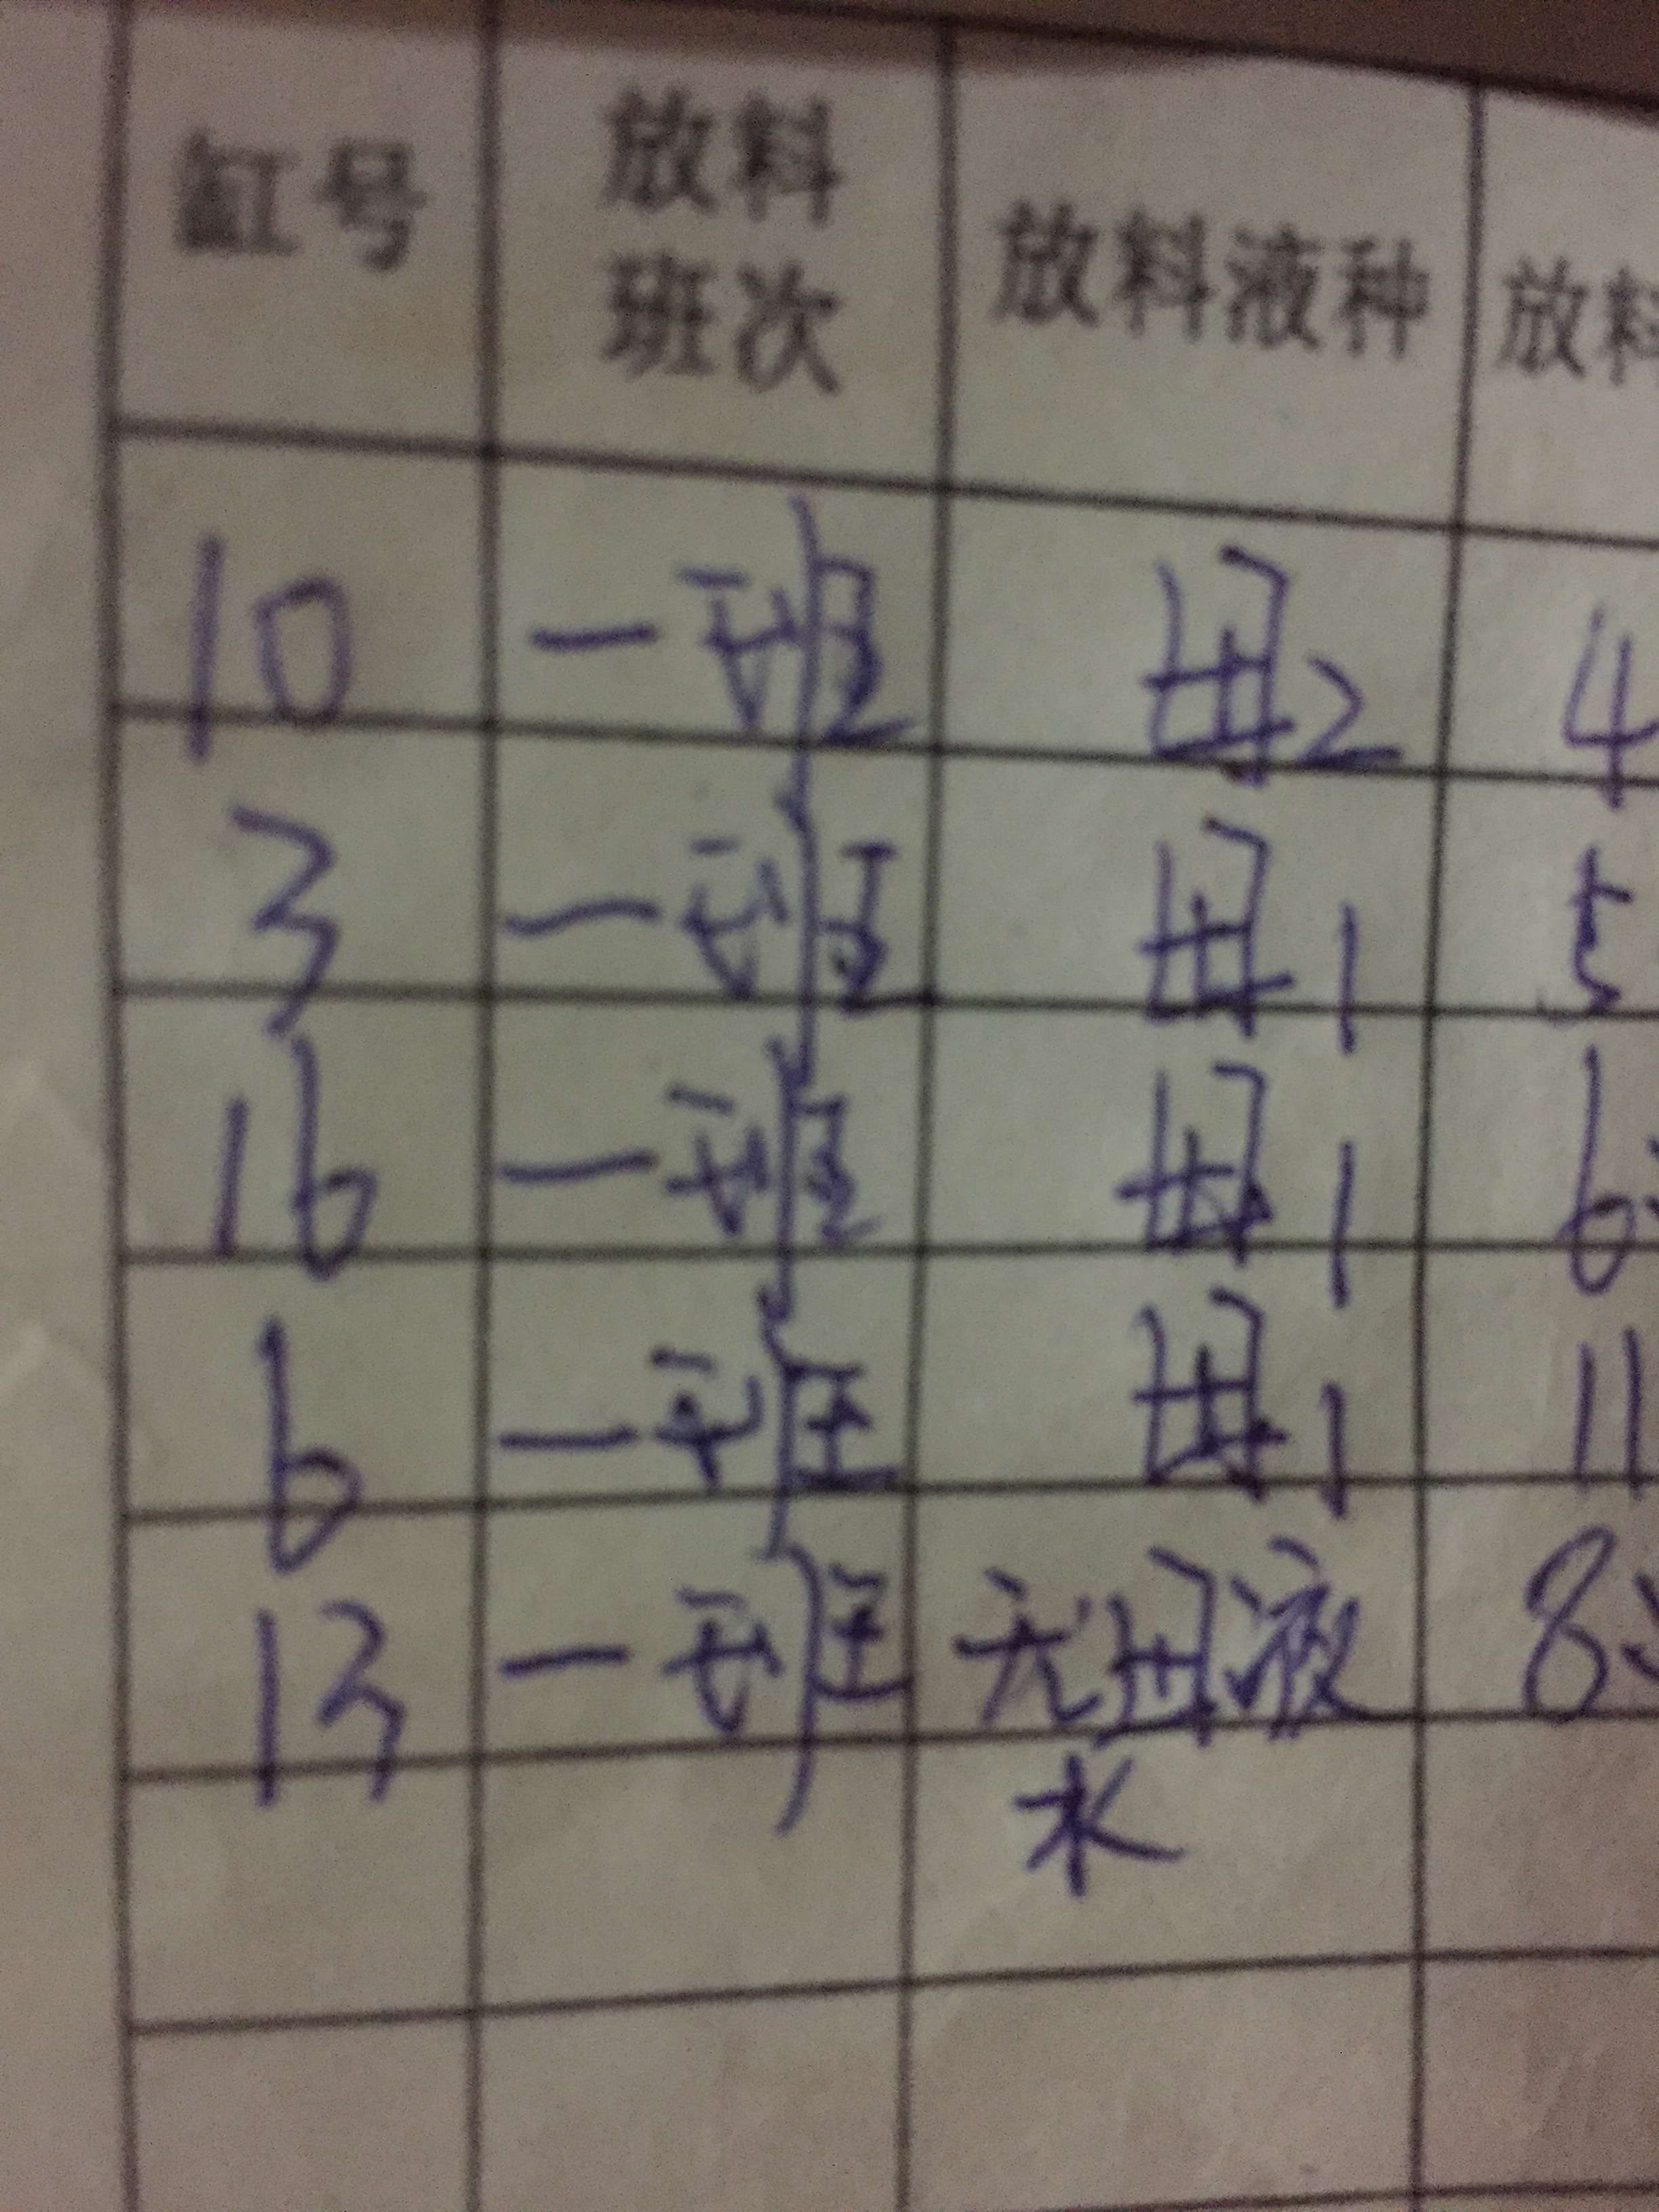 缸号 放料班次 放料液种 放料
10 一班 母2 4
3 一班 母1 5
16 一班 母1 6
6 一班 母1 11
13 一班 无母液水 8